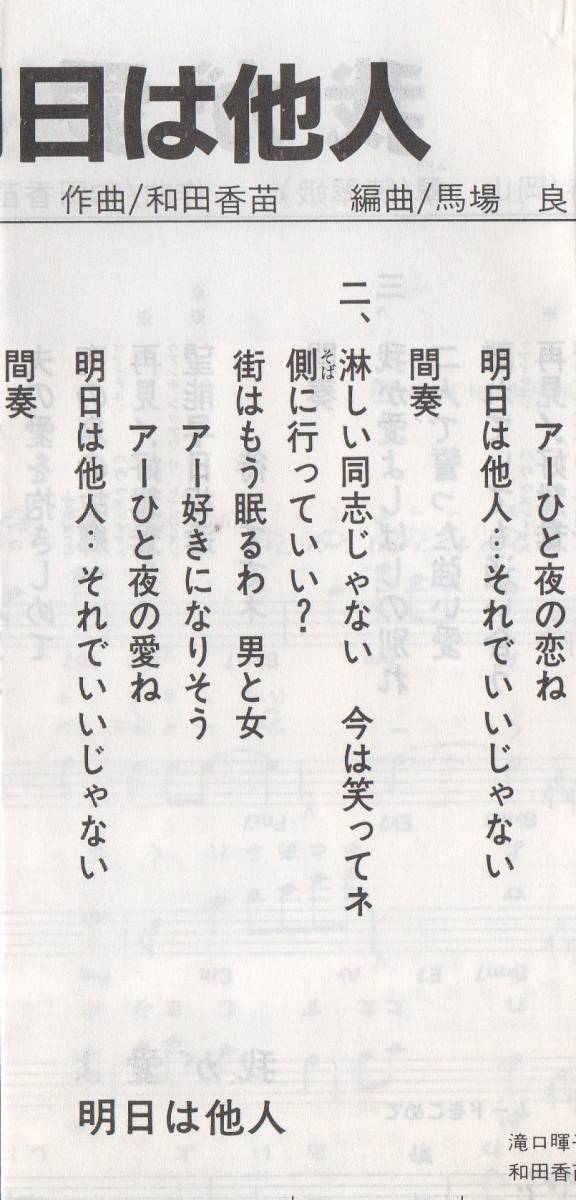 明日は他人
作曲/和田香苗　編曲/馬場　良
アーひと夜の恋ね
明日は他人‥それでいいじゃない
間奏
二、淋しい同志じゃない　今は笑ってネ
側に行っていい？
そば
街はもう眠るわ　男と女
アー好きになりそう
アーひと夜の愛ね
明日は他人‥それでいいじゃない
間奏
明日は他人
滝口暉子
和田香苗